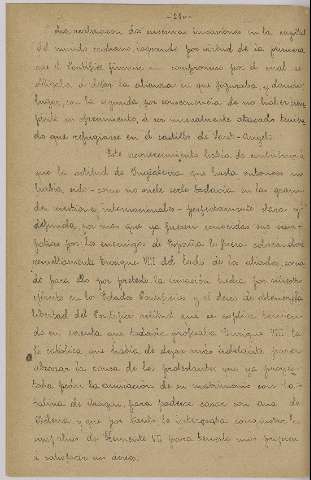 -28-
Los realizaron dos misiones incursiones en la capital
del mundo cristiano, logrando por virtud de la primera
que el Pontífice firmase un compromiso por el cual se
obligaba a dejar la alianza en que figuraba, y dando
lugar, con la segunda por consecuencia de no haber
puesto en ofrecimiento, a ser nuevamente atacado teniendo
do que refugiarse en el castillo de Sant-Angelo.
Este acontecimiento había de contribuir a
que la actitud de Inglaterra que hasta entonces no
había sido -como no suele serlo todavía en las grandes
cuestiones internacionales- perfectamente clara y
definida, por más que ya fuesen conocidas sus simpatías
patías por los enemigos de España lo fuera, colocándose
resueltamente Enrique VII del lado de los aliados, sirviéndole
de para ello por pretexto la invasión hecha por nuestro
ejército en los Estados Pontificios y el deseo de obtener la
libertad del Pontífice actitud que se explica teniendo
do en cuenta que todavía profesaba Enrique VIII la
fe católica que había de dejar más adelante para
abrazar la causa de los protestantes que ya proyectaba
taba pedir la anulación de su matrimonio con Catalina
talina de Aragón, para poderse casar con Ana de
Bolena y que por tanto le interesaba conquistar la
simpatías de Clemente VII para tenerlo más propicio
a satisfacer sus deseos.